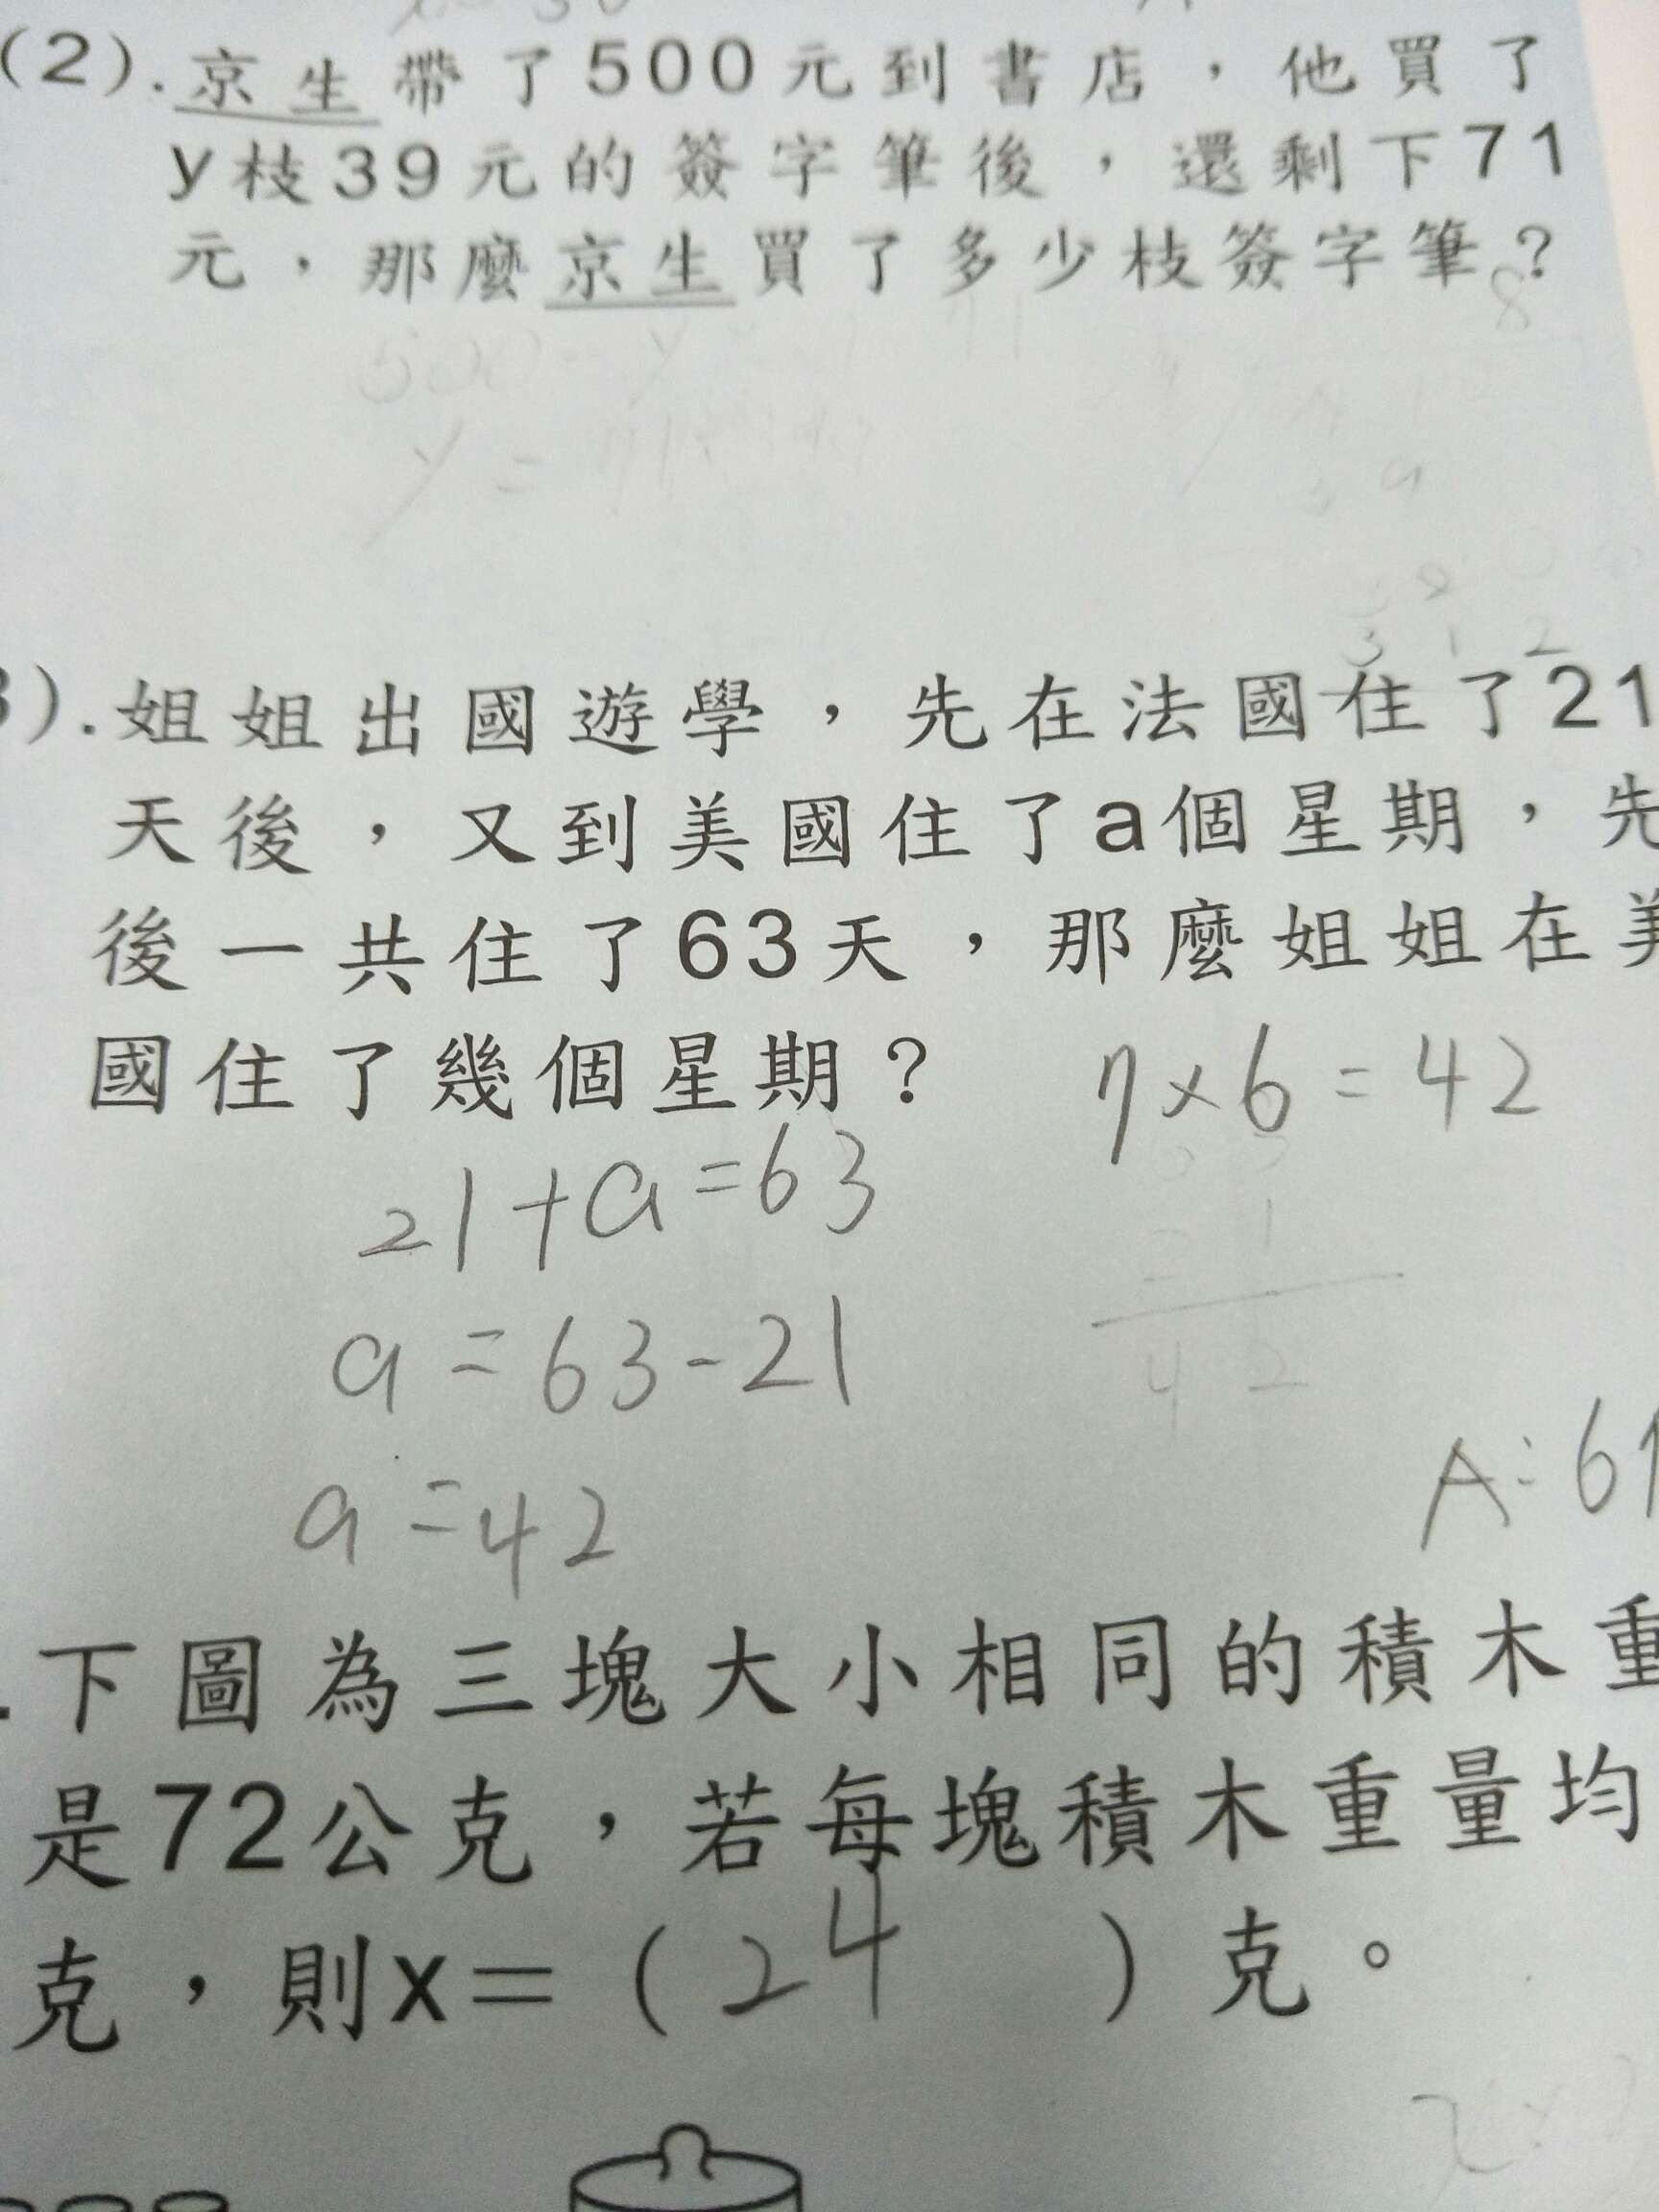 (2).京生帶了500元到書店，他買了
y枝39元的簽字筆後，還剩下71
元，那麼京生買了多少枝簽字筆？
8
500-y
y=
3 1 2
).姐姐出國遊學，先在法國住了21
天後，又到美國住了a個星期，先
後一共住了63天，那麼姐姐在美
國住了幾個星期？ 7×6=42
21+a=63
a=63-21
42
a=42
A:6
.下圖為三塊大小相同的積木重
是72公克，若每塊積木重量均
克，則x=（24）克。